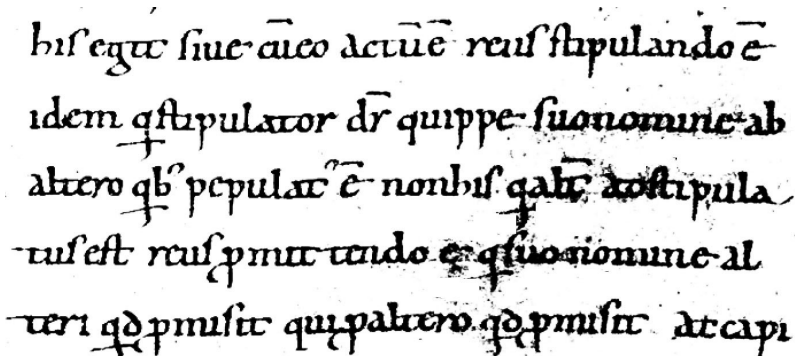 hisegit siue cū eo actū ē reus stipulando ē
idem q stipulator dr̄ quippe suo nomine ab
altero qb; pepulat' ē non his q alt̄ astipula
tus est reus ꝓmittendo ē q suo nomine al
teri qđ ꝓmisit qui ꝓ altero qđ ꝓmisit at capi